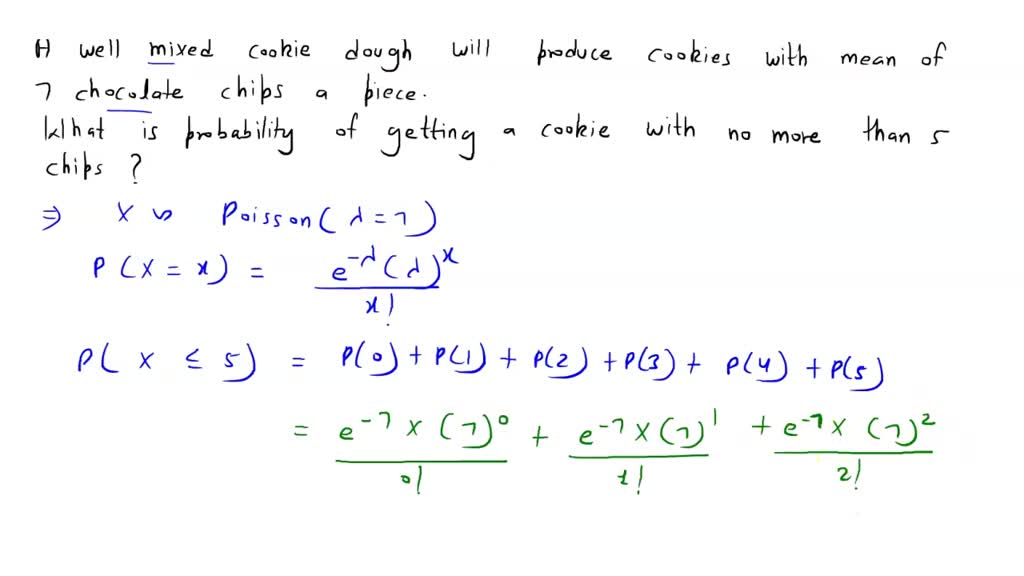 A well mixed cookie dough will produce cookies with mean of
7 chocolate chips a piece.
What is probability of getting a cookie with no more than 5
chips ?
⇒ X ~ Poisson( λ = 7 )
P ( X = x ) = e^-λ (λ)^x / x!
P( X ≤ 5 ) = P(0) + P(1) + P(2) + P(3) + P(4) + P(5)
= e^-7 × (7)^0 / 0! + e^-7 × (7)^1 / 1! + e^-7 × (7)^2 / 2!